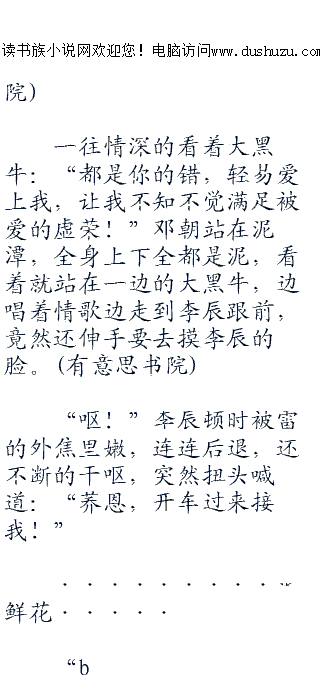 读书族小说网欢迎您！电脑访问www.dushuzu.com
院）
一往情深的看着大黑
牛：“都是你的错，轻易爱
上我，让我不知不觉满足被
爱的虚荣！”邓朝站在泥
潭，全身上下全都是泥，看
着就站在一边的大黑牛，边
唱着情歌边走到李辰跟前，
竟然还伸手要去摸李辰的
脸。(有意思书院)
“呕！”李辰顿时被雷
的外焦里嫩，连连后退，还
不断的干呕，突然扭头喊
道：“荞恩，开车过来接
我！”
．．．．．．．．．．
鲜花．．．．．
“b